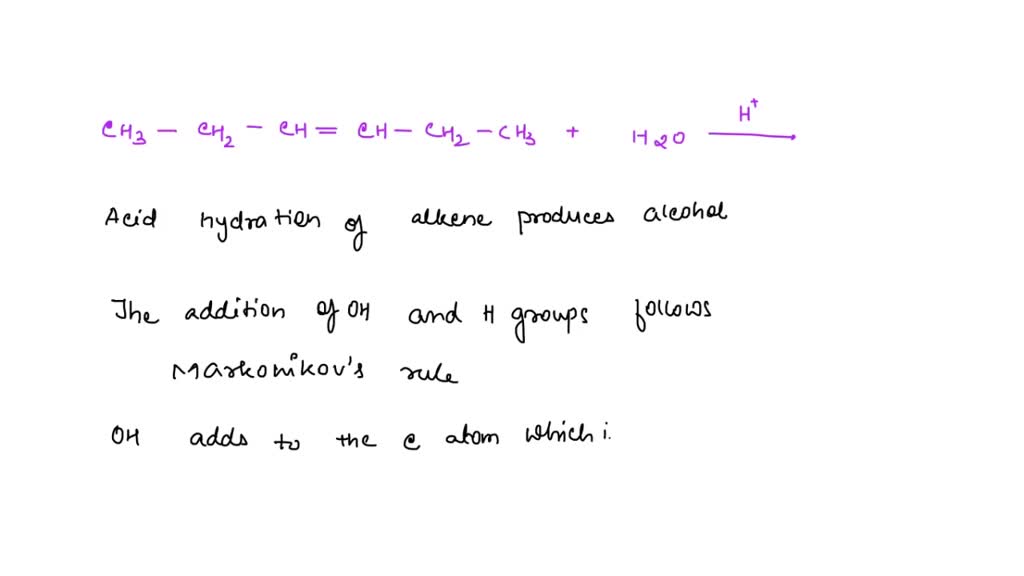 CH3 — CH2 — CH = CH — CH2 — CH3 + H2O H+
Acid hydration of alkene produces alcohol
The addition of OH and H groups follows
Markonikov's rule
OH adds to the C atom which i